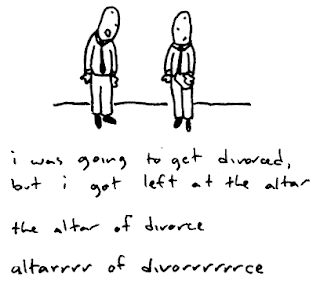 i was going to get divorced,
but i got left at the altar
the altar of divorce
altarrrr of divorrrrrrce